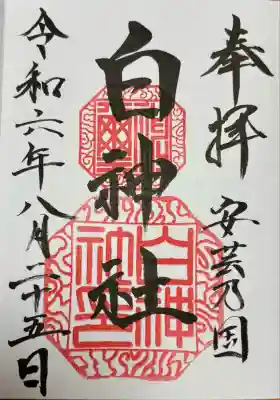 奉拝
安芸乃国
白神社
令和六年八月二十五日
白神社印